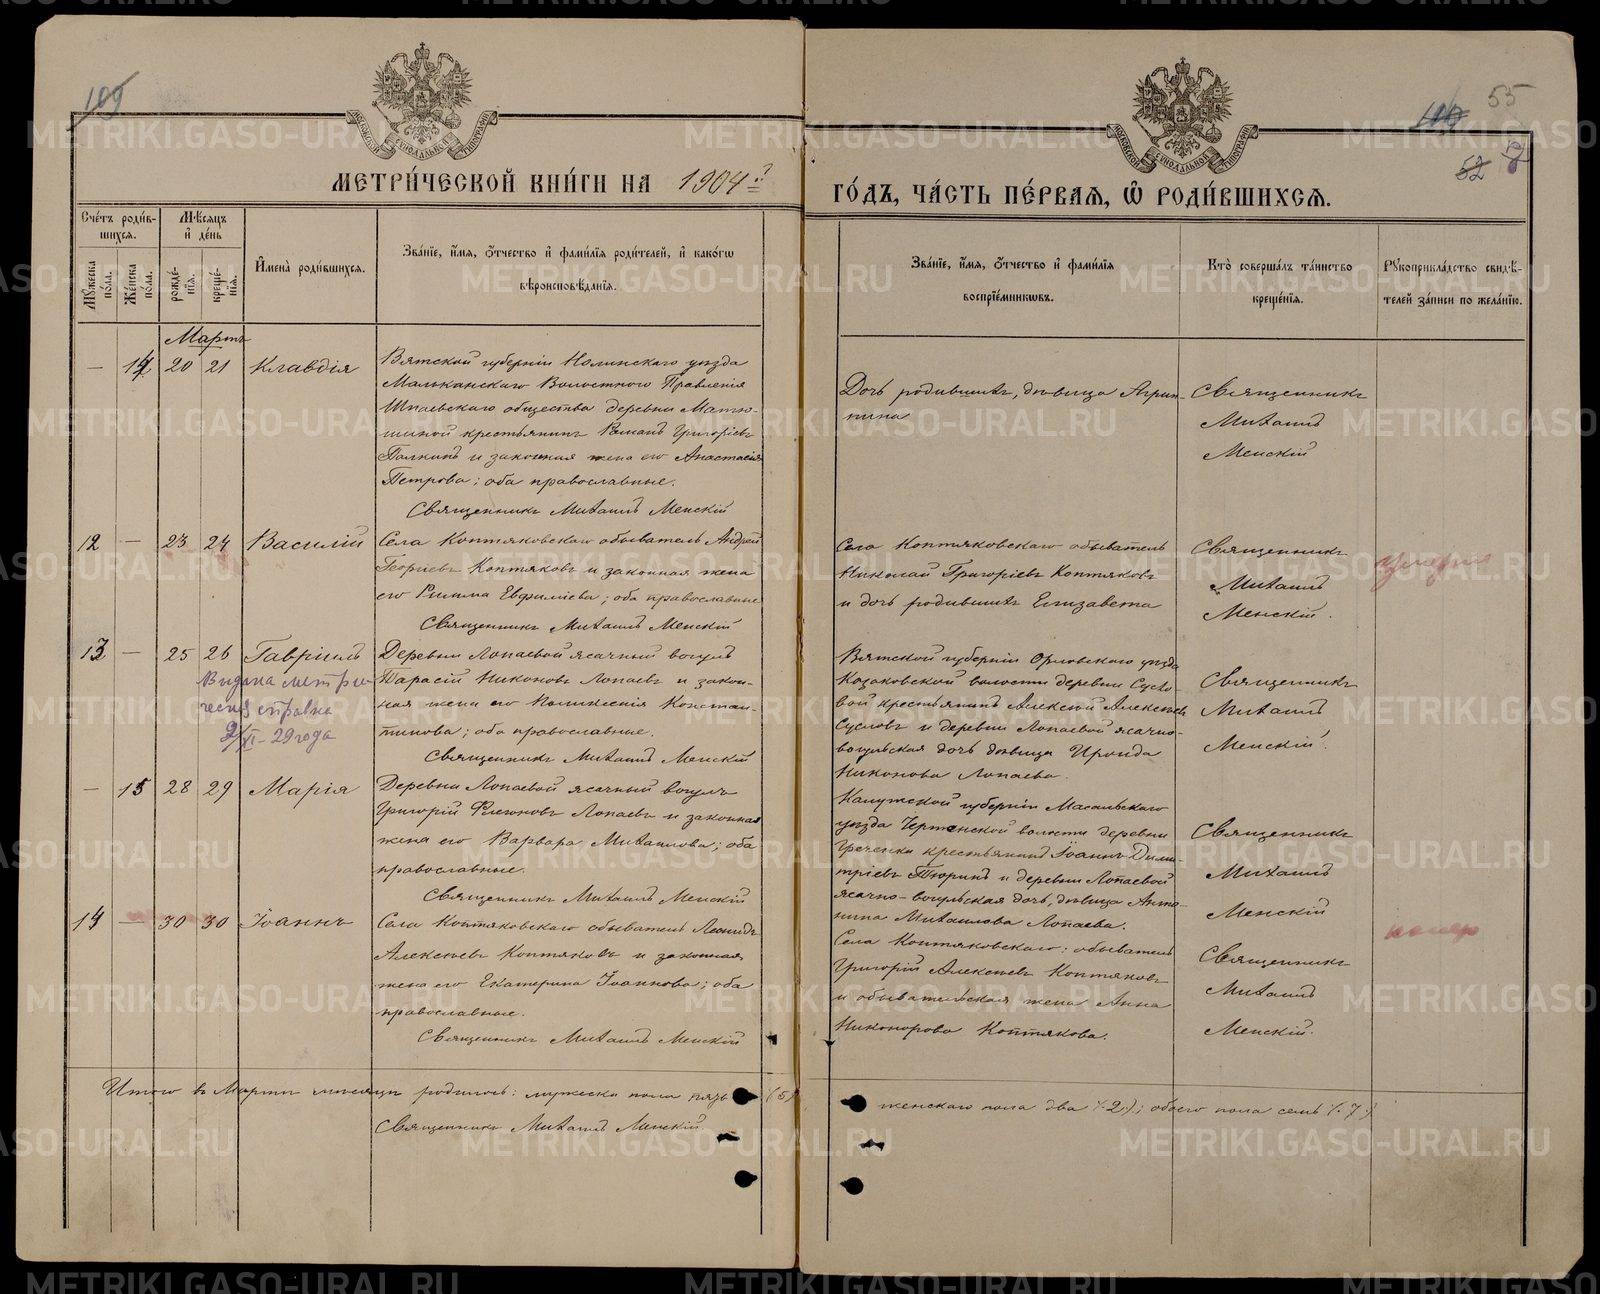 109
109
55
52
МЕТРИ́ЧЕСКОЙ КНИ́ГИ НА 1904й
ГО́ДЪ, ЧА́СТЬ ПЕ́РВАЯ, Ѡ҆ РОДИ́ВШИХСЯ.
Сче́тъ роди́в-
шихся.
Му́жеска по́ла.
Же́нска по́ла.
Мѣ́сяцъ
и҆ де́нь
рожде́-
нїя.
креще́-
нїя.
И҆мена̀ роди́вшихся.
Зва́нїе, и҆́мя, ѻ҆́тчество и҆ фами́лїя роди́телей, и҆ како́гѡ
вѣроисповѣ́данїя.
Зва́нїе, и҆́мя, ѻ҆́тчество и҆ фами́лїя
воспрїе́мникѡвъ.
Кто̀ соверша́лъ та́инство
креще́нїя.
Рукоприкла́дство свидѣ́-
телей за́писи по жела́нїю.
Мартъ
— 14 20 21 Клавдія
Вятской губерніи Нолинскаго уѣзда
Мальканскаго Волостного Правленія
Шпаевскаго общества деревни Матю-
шиной крестьянинъ Романъ Григоріевъ
Палкинъ и законная жена его Анастасія
Петрова; оба православные.
Священникъ Михаилъ Менскій
Дочь родившихъ, дѣвица Агрип-
пина
Священникъ
Михаилъ
Менскій
12 — 23 24 Василій
Села Коптяковскаго обыватель Андрей
Георгіевъ Коптяковъ и законная жена
его Римма Евфиміева; оба православные
Священникъ Михаилъ Менскій
Села Коптяковскаго обыватель
Николай Григоріевъ Коптяковъ
и дочь родившихъ Елизавета
Священникъ
Михаилъ
Менскій.
умеръ
13 — 25 26 Гавріилъ
Выдана метри-
ческая справка
2/XI-29 года
Деревни Лопаевой ясачный вогулъ
Тарасій Никоновъ Лопаевъ и закон-
ная жена его Поликсенія Констан-
тинова; оба православные.
Священникъ Михаилъ Менскій
Вятской губерніи Орловскаго уѣзда
Казаковской волости деревни Сусло-
вой крестьянинъ Алексѣй Алексѣевъ
Сусловъ и деревни Лопаевой ясачно-
вогульская дочь дѣвица Ираида
Никонова Лопаева.
Священникъ
Михаилъ
Менскій.
— 15 28 29 Марія
Деревни Лопаевой ясачный вогулъ
Григорій Флегоновъ Лопаевъ и законная
жена его Варвара Михаилова; оба
православные.
Священникъ Михаилъ Менскій
Калужской губерніи Масальскаго
уѣзда Чертенской волости деревни
Греченки крестьянинъ Іоаннъ Дими-
тріевъ Тюринъ и деревни Лопаевой
ясачно-вогульская дочь, дѣвица Анто-
нина Михаилова Лопаева.
Священникъ
Михаилъ
Менскій
14 — 30 30 Іоаннъ
Села Коптяковскаго обыватель Леонидъ
Алексѣевъ Коптяковъ и законная
жена его Екатерина Іоаннова; оба
православные.
Священникъ Михаилъ Менскій
Села Коптяковскаго: обыватель
Григорій Алексѣевъ Коптяковъ
и обывательская жена Анна
Никонорова Коптякова.
Священникъ
Михаилъ
Менскій.
помер
Итого въ Мартѣ мѣсяцѣ родилось: мужеска пола пять (5)
женскаго пола два (2); обоего пола семь (7)
Священникъ Михаилъ Менскій
METRIKI.GASO-URAL.RU